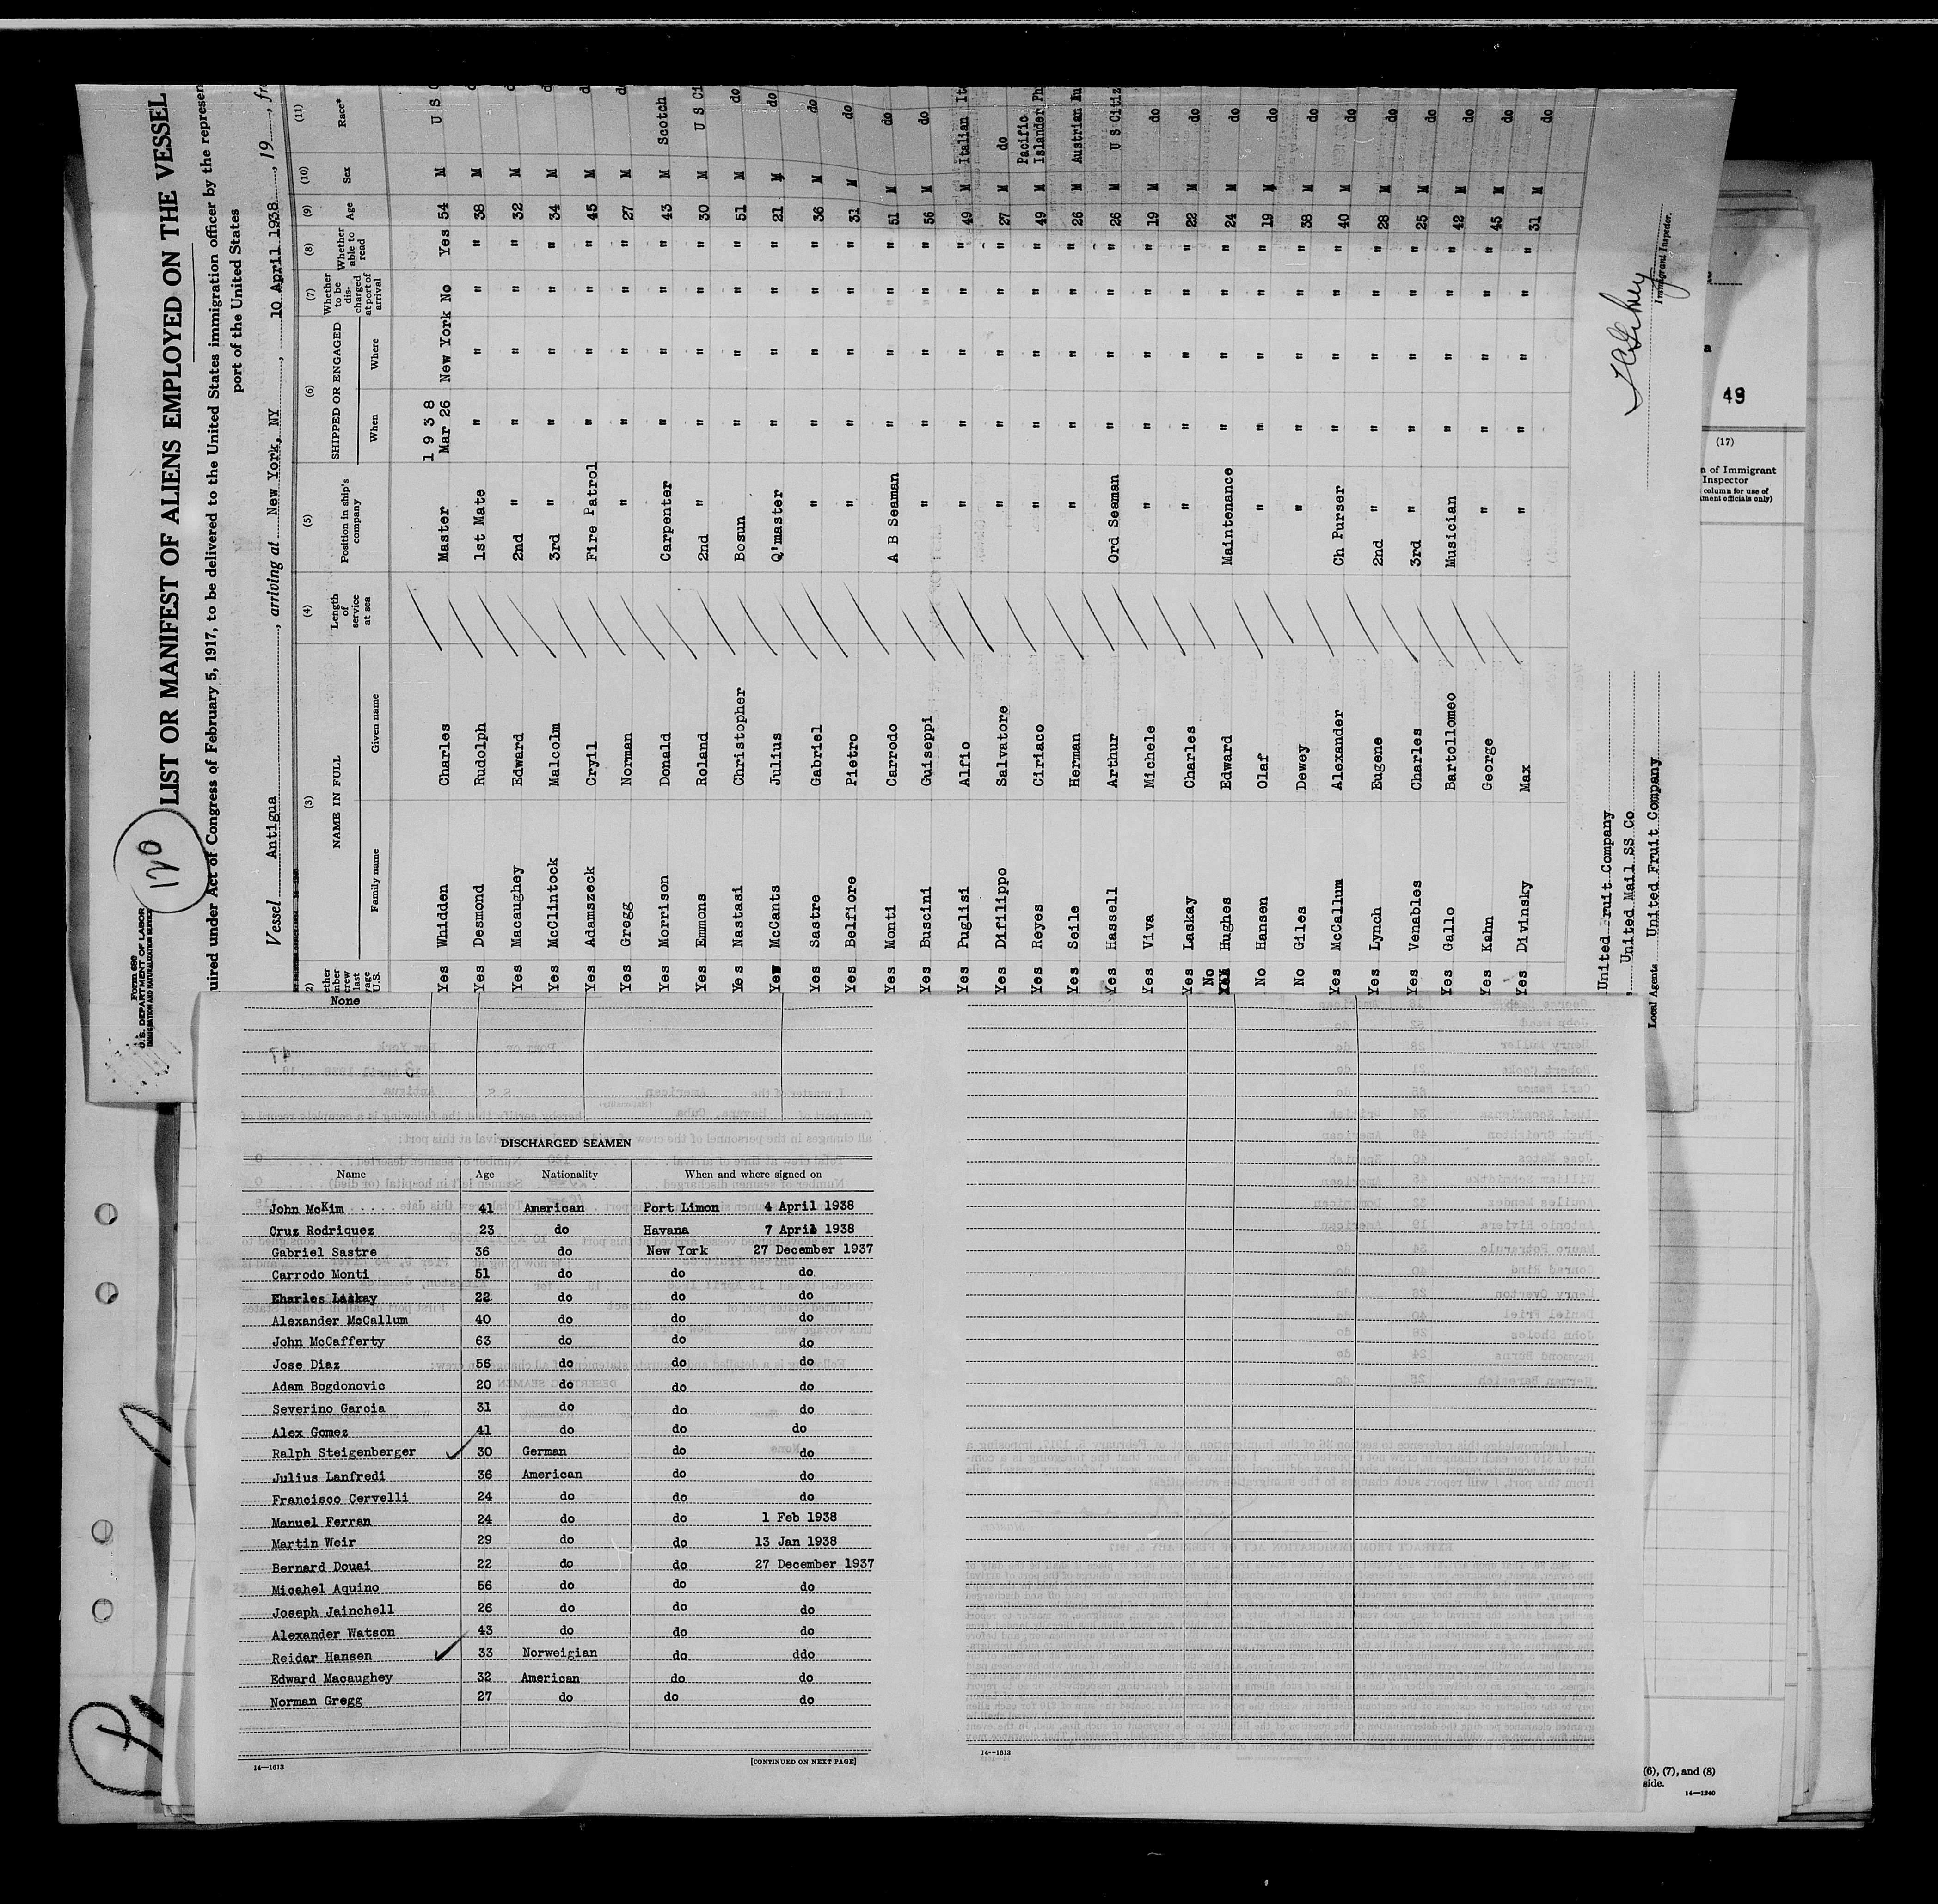 Form 689
U.S. DEPARTMENT OF LABOR
IMMIGRATION AND NATURALIZATION SERVICE
120
LIST OR MANIFEST OF ALIENS EMPLOYED ON THE VESSEL
uired under Act of Congress of February 5, 1917, to be delivered to the United States immigration officer by the represen
port of the United States
Vessel Antigua, arriving at New York, NY, 10 April 1938, 19, fr
(3) (4) (5) (6) (7) (8) (9) (10) (11)
NAME IN FULL Length of service at sea Position in ship's company SHIPPED OR ENGAGED Whether to be discharged at port of arrival Whether able to read Age Sex Race*
Family name Given name When Where
1 9 3 8
Yes Whidden Charles Master Mar 26 New York No Yes 54 M U S C
Yes Desmond Rudolph 1st Mate " " " " 38 M d
Yes Macaughey Edward 2nd " " " " " 32 M d
Yes McClintock Malcolm 3rd " " " " " 34 M d
Yes Adamszeck Cryil Fire Patrol " " " " 45 M d
Yes Gregg Norman " " " " " 27 M d
Yes Morrison Donald Carpenter " " " " 43 M Scotch
Yes Emmons Roland 2nd " " " " " 30 M U S Ci
Yes Nastasi Christopher Bosun " " " " 51 M do
Yes McCants Julius Q'master " " " " 21 M do
Yes Sastre Gabriel " " " " " 36 M do
Yes Belfiore Pietro " " " " " 31 M do
Yes Monti Carrodo A B Seaman " " " " 51 M do
Yes Buscini Guiseppi " " " " " 56 M do
Yes Puglisi Alfio " " " " " 49 M Italian It
Yes Difilippo Salvatore " " " " " 27 M do
Yes Reyes Ciriaco " " " " " 49 M Pacific Islander Ph
Yes Seile Herman " " " " " 26 M Austrian Au
Yes Hassell Arthur Ord Seaman " " " " 26 M U S Citiz
Yes Viva Michele " " " " " 19 M do
Yes Laskay Charles " " " " " 22 M do
No Hughes Edward Maintenance " " " " 24 M do
No Hansen Olaf " " " " " 19 M do
No Giles Dewey " " " " " 38 M do
Yes McCallum Alexander Ch Purser " " " " 40 M do
Yes Lynch Eugene 2nd " " " " " 28 M do
Yes Venables Charles 3rd " " " " " 25 M do
Yes Gallo Bartollomeo Musician " " " " 42 M do
Yes Kahn George " " " " " 45 M do
Yes Divinsky Max " " " " " 31 M do
United Fruit Company
United Mail SS Co
Local Agents United Fruit Company
Immigrant Inspector.
49
(17)
n of Immigrant
Inspector
column for use of
ment officials only)
None
DISCHARGED SEAMEN
Name Age Nationality When and where signed on
John McKim 41 American Port Limon 4 April 1938
Cruz Rodriquez 23 do Havana 7 April 1938
Gabriel Sastre 36 do New York 27 December 1937
Carrodo Monti 51 do do do
Charles Laskay 22 do do do
Alexander McCallum 40 do do do
John McCafferty 63 do do do
Jose Diaz 56 do do do
Adam Bogdonovic 20 do do do
Severino Garcia 31 do do do
Alex Gomez 41 do do do
Ralph Steigenberger 30 German do do
Julius Lanfredi 36 American do do
Francisco Cervelli 24 do do do
Manuel Ferran 24 do do 1 Feb 1938
Martin Weir 29 do do 13 Jan 1938
Bernard Douai 22 do do 27 December 1937
Micahel Aquino 56 do do do
Joseph Jainchell 26 do do do
Alexander Watson 43 do do do
Reidar Hansen 33 Norweigian do ddo
Edward Macaughey 32 American do do
Norman Gregg 27 do do do
14—1613
[CONTINUED ON NEXT PAGE]
14—1613
(6), (7), and (8)
side.
14—1240